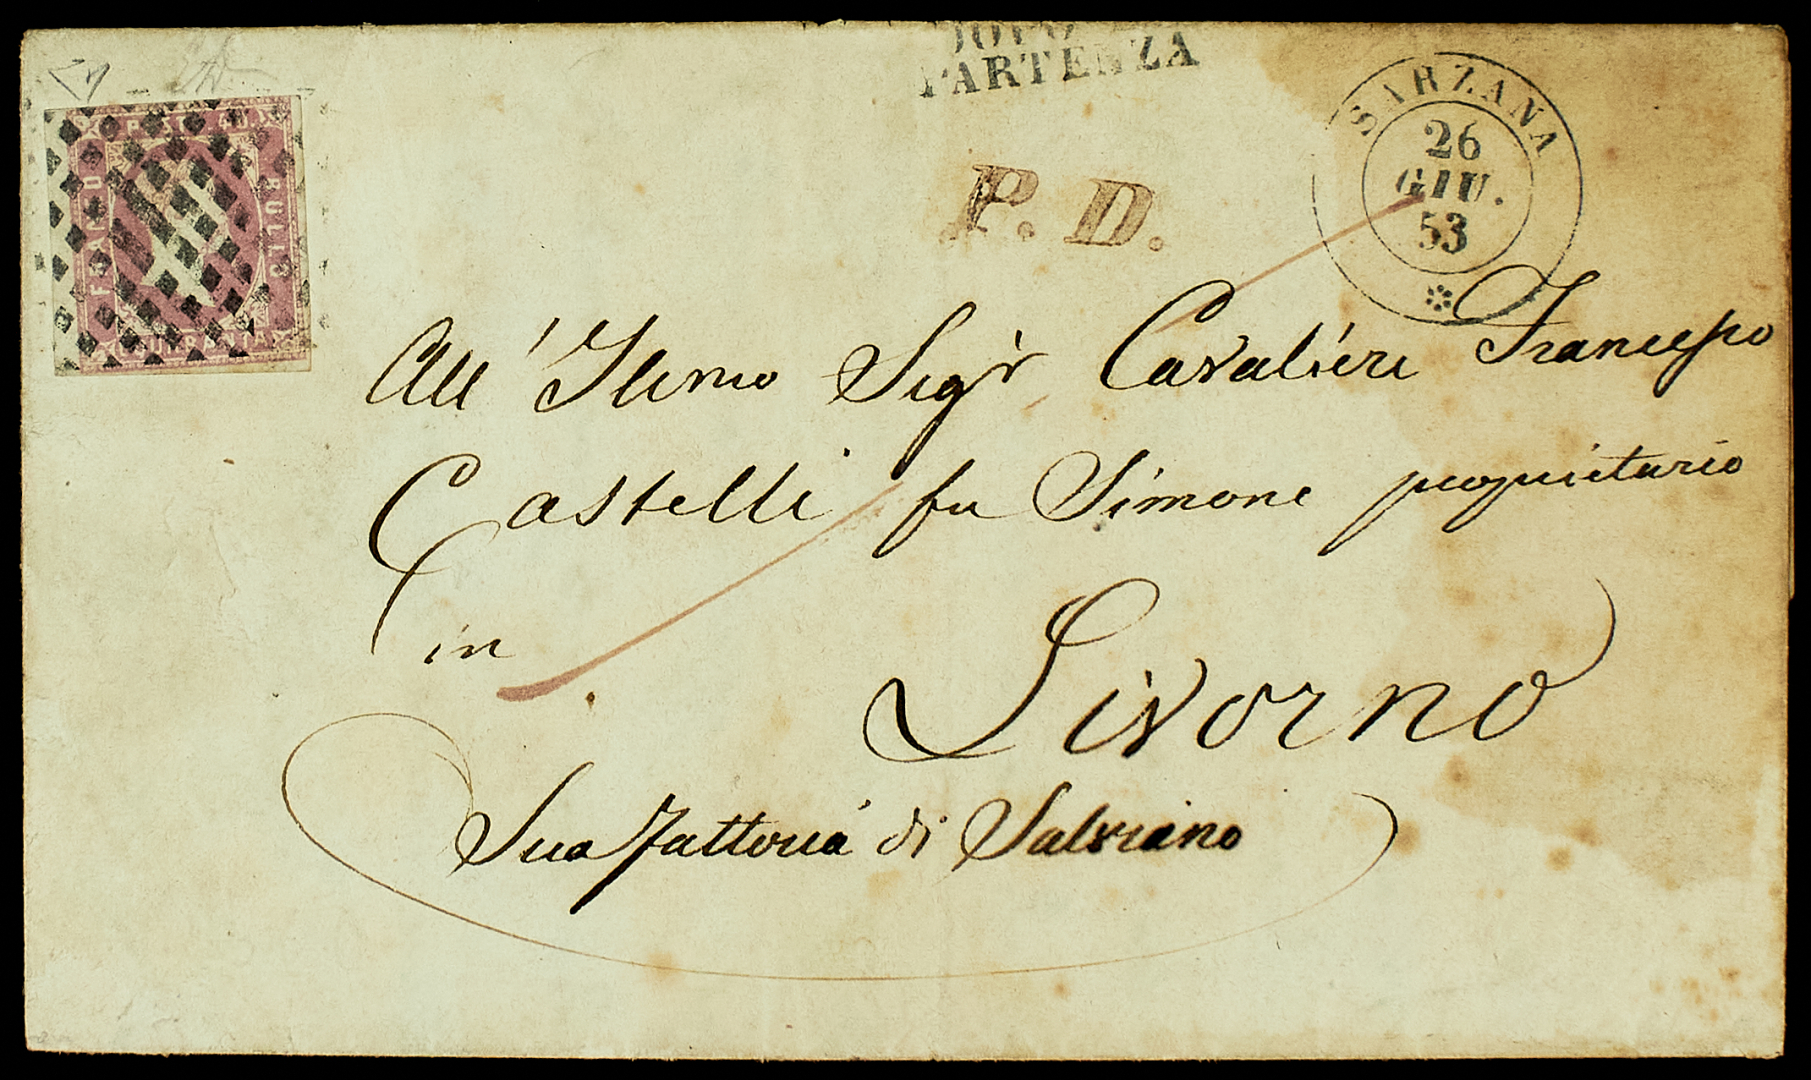 DOPO
PARTENZA
SARZANA
26
GIU.
53
P. D.
FRANCO
BOLLO
All' Illmo Sigr Cavalieri Francesco
Castelli fu Simone proprietario
in
Livorno
Sua fattoria di Salviano